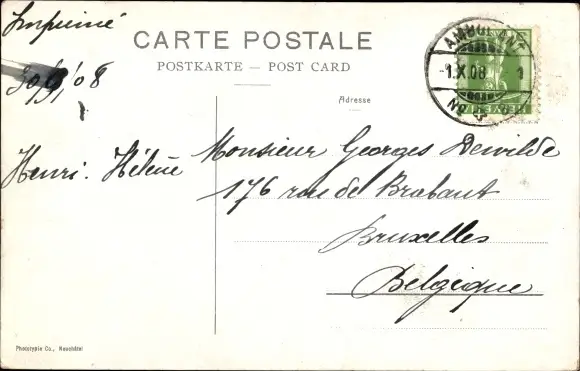 Imprimé
CARTE POSTALE
POSTKARTE — POST CARD
Adresse
AMBULANT
-1.X.08 - 1
No
HELVETIA
Henri. Hélène
Monsieur Georges Dewilde
176 rue de Brabant
Bruxelles
Belgique
Phototypie Co., Neuchâtel